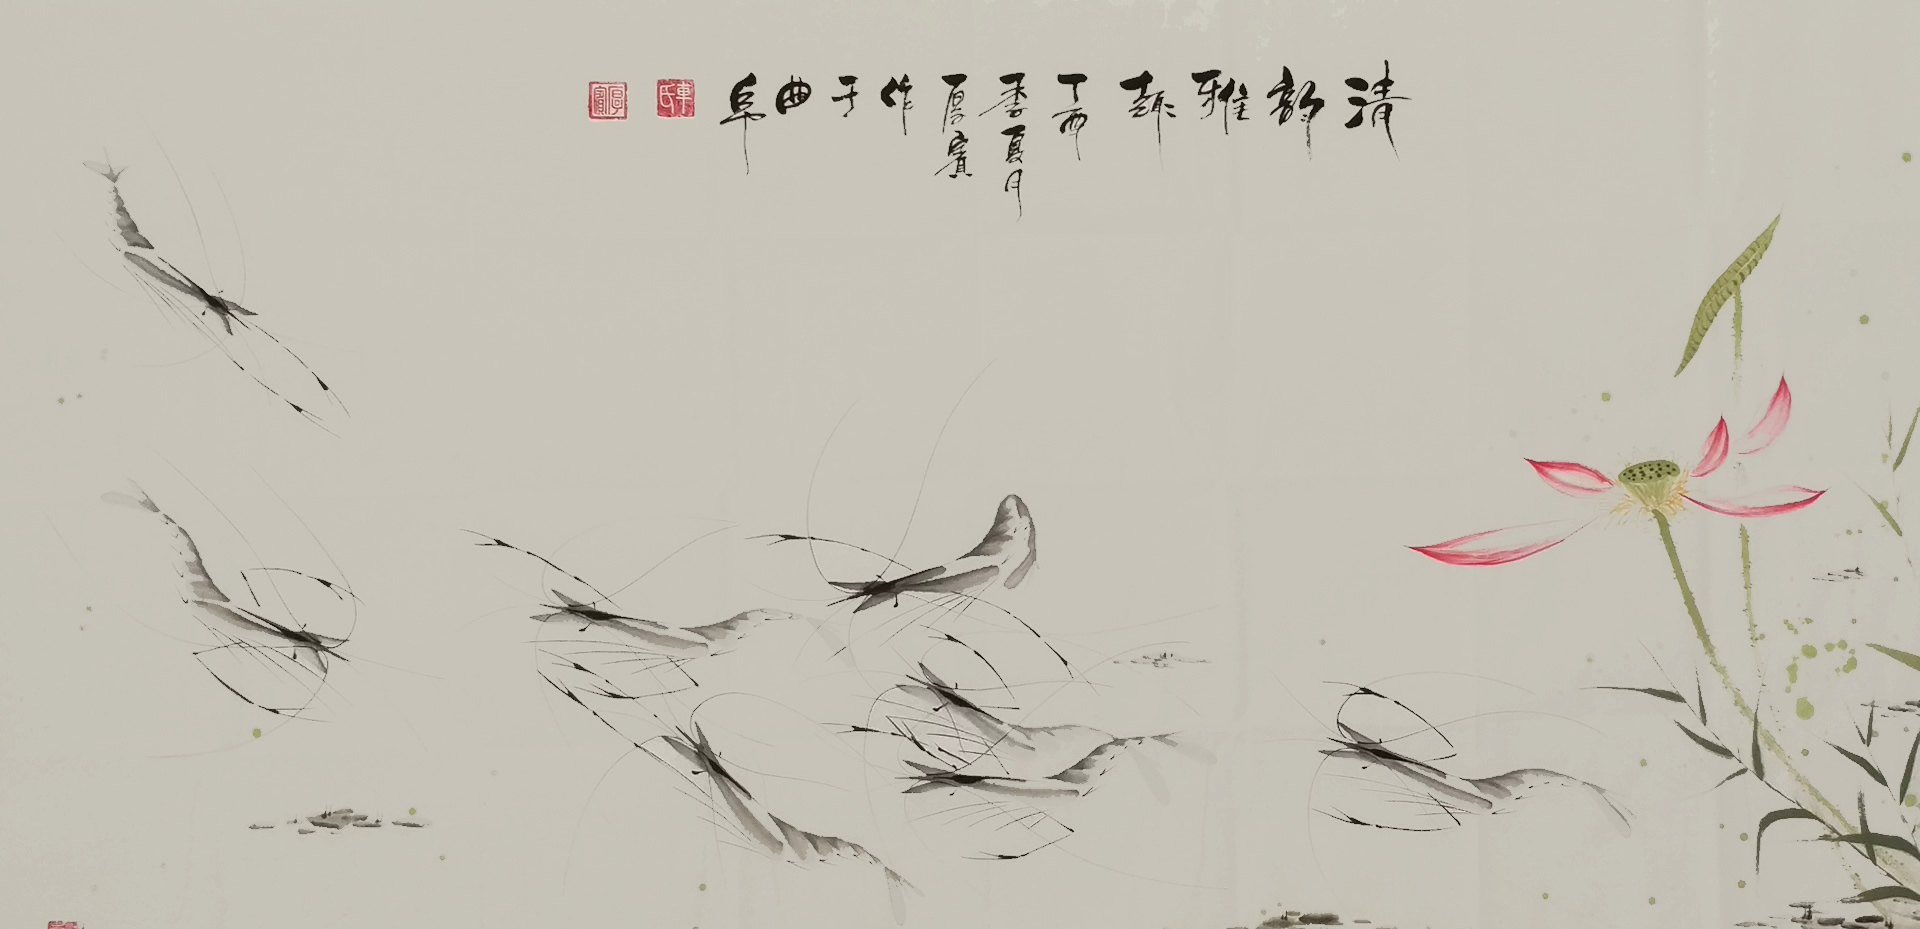 清韵雅趣丁酉季夏月厚賓作于曲阜
車氏
厚賓